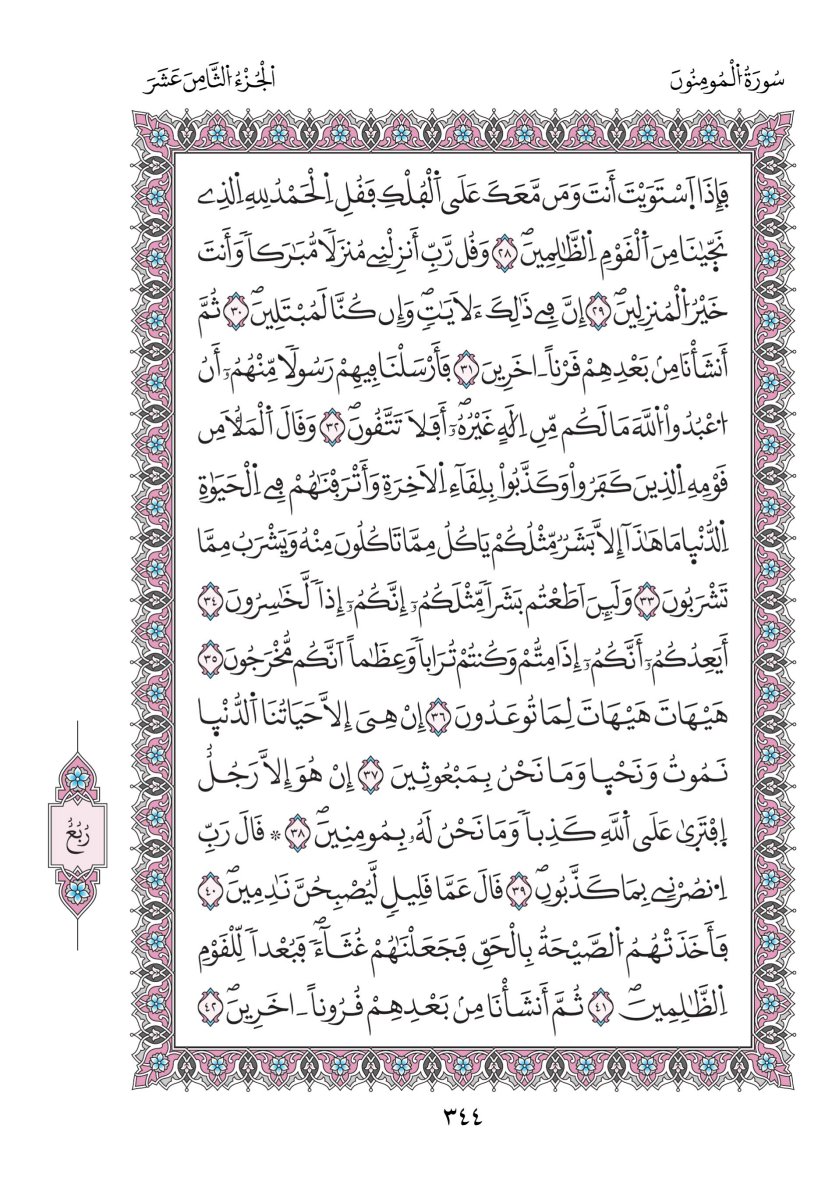 سُورَةُ اُ۬لْمُومِنُونَ
اَ۬لْجُزْءُ اُ۬لثَّامِنَ عَشَرَ
فَإِذَا اَ۪سْتَوَيْتَ أَنتَ وَمَن مَّعَكَ عَلَى اَ۬لْفُلْكِ فَقُلِ اِ۬لْحَمْدُ لِلهِ اِ۬لذِے
نَجّ۪يٰنَا مِنَ اَ۬لْقَوْمِ اِ۬لظَّٰلِمِينَۖ ٢٨ وَقُل رَّبِّ أَنزِلْنِے مُنزَلاٗ مُّبَٰرَكاٗ وَأَنتَ
خَيْرُ اُ۬لْمُنزِلِينَۖ ٢٩ إِنَّ فِے ذَٰلِكَ ءَلَايَٰتٖۖ وَإِن كُنَّا لَمُبْتَلِينَۖ ٣٠ ثُمَّ
أَنشَأْنَا مِنۢ بَعْدِهِمْ قَرْناً ـ اخَرِينَ ٣١ فَأَرْسَلْنَا فِيهِمْ رَسُولاٗ مِّنْهُمُۥٓ أَنُ
اُ۟عْبُدُواْ اُ۬للَّهَ مَا لَكُم مِّنِ اِلَٰهٍ غَيْرُهُۥٓۖ أَفَلَا تَتَّقُونَۖ ٣٢ وَقَالَ اَ۬لْمَلَأُ مِن
قَوْمِهِ اِ۬لذِينَ كَفَرُواْ وَكَذَّبُواْ بِلِقَآءِ اِ۬لَاخِرَةِ وَأَتْرَفْنَٰهُمْ فِے اِ۬لْحَيَوٰةِ
اِ۬لدُّنْي۪ا مَا هَٰذَآ إِلَّا بَشَرٞ مِّثْلُكُمْ يَاكُلُ مِمَّا تَاكُلُونَ مِنْهُ وَيَشْرَبُ مِمَّا
تَشْرَبُونَ ٣٣ وَلَئِنَ اَطَعْتُم بَشَراٗ مِّثْلَكُمُۥٓ إِنَّكُمُۥٓ إِذاٗ لَّخَٰسِرُونَ ٣٤
أَيَعِدُكُمُۥٓ أَنَّكُمُۥٓ إِذَا مِتُّمْ وَكُنتُمْ تُرَاباٗ وَعِظَٰماً اَنَّكُم مُّخْرَجُونَ ٣٥
هَيْهَاتَ هَيْهَاتَ لِمَا تُوعَدُونَ ٣٦ إِنْ هِيَ إِلَّا حَيَاتُنَا اَ۬لدُّنْي۪ا
نَمُوتُ وَنَحْي۪ا وَمَا نَحْنُ بِمَبْعُوثِينَ ٣٧ إِنْ هُوَ إِلَّا رَجُلٌ
اِ۪فْتَر۪يٰ عَلَى اَ۬للَّهِ كَذِباٗ وَمَا نَحْنُ لَهُۥ بِمُومِنِينَۖ ٣٨ ۞ قَالَ رَبِّ
اِ۟نصُرْنِے بِمَا كَذَّبُونِۖ ٣٩ قَالَ عَمَّا قَلِيلٖ لَّيُصْبِحُنَّ نَٰدِمِينَۖ ٤٠
فَأَخَذَتْهُمُ اُ۬لصَّيْحَةُ بِالْحَقِّ فَجَعَلْنَٰهُمْ غُثَآءٗۖ فَبُعْداٗ لِّلْقَوْمِ
اِ۬لظَّٰلِمِينَۖ ٤١ ثُمَّ أَنشَأْنَا مِنۢ بَعْدِهِمْ قُرُوناً ـ اخَرِينَۖ ٤٢
رُبُعُ
٣٤٤